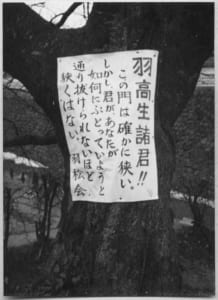 羽高生諸君!!
この門は確かに狭い。
しかし、君が、あなたが
如何にぶとっていようと
通り抜けられないほど
狭くはない。
羽松会